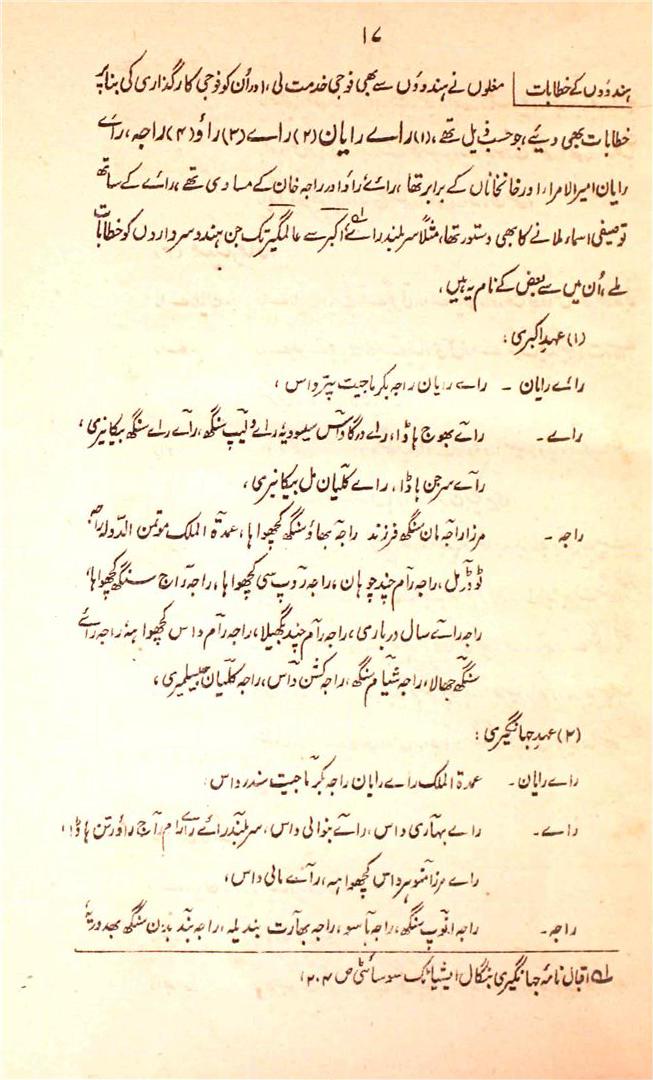 ۱۷
ہندوؤں کے خطابات | مغلوں نے ہندوؤں سے بھی فوجی خدمت لی، اور اُن کو فوجی کارگذاری کی بنا پر
خطابات بھی دیئے، جو حسب ذیل تھے، (۱) راے رایان (۲) راے (۳) راؤ (۴) راجہ، راے
رایان امیر الامرا اور خانخاناں کے برابر تھا، رائے راؤ اور راجہ خان کے مساوی تھے، رائے کے ساتھ
توصیفی اسماء ملانے کا بھی دستور تھا، مثلاً سربلند راے، اکبر سے عالمگیر تک جن ہندو سرداروں کو خطابات
ملے، اُن میں سے بعض کے نام یہ ہیں،
(۱) عہد اکبری:
رائے رایان - راے رایان راجہ بکرماجیت پتر داس،
راے - راے بھوج ہاڈا، راے درگا داس سیسودیہ راے دلیپ سنگھ، راے راے سنگھ بیکانیری،
راے سرجن ہاڈا، راے کلّیان مل بیکانیری،
راجہ - مرزا راجہ مان سنگھ فرزند راجہ بھاؤ سنگھ کچھواہا، عمدۃ الملک موتمن الدولہ راجہ
ٹوڈرمل، راجہ رام چند چوہان، راجہ روپ سی کچھواہا، راجہ راج سنگھ کچھواہا،
راجہ راے سال درباری، راجہ رام چند بگھیلا، راجہ رام داس کچھواہہ، راجہ رائے
سنگھ جھالا، راجہ شیام سنگھ، راجہ کشن داس، راجہ کلّیان جیسلمیری،
(۲) عہد جہانگیری:
راے رایان - عمدۃ الملک راے رایان راجہ بکرماجیت سندر داس،
راے - راے بہاری داس، راے بنوالی داس، سربلند رائے رام راج راؤ رتن ہاڈا،
راے مرزا منوہر داس کچھواہہ، راے مالی داس،
راجہ - راجہ انوپ سنگھ، راجہ باسو، راجہ بھارت بندیلہ، راجہ سنگھ بھدوریہ
لہ اقبال نامۂ جہانگیری بنگال ایشیاٹک سوسائٹی ص ۲۰۴،